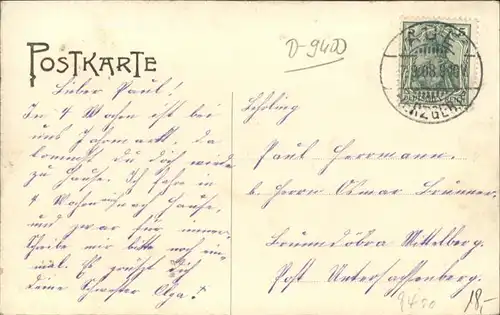 POSTKARTE
D-9400
AUE
ERZGEB.
5
Lieber Paul!
In 4 Wochen ist bei
uns Jahrmarkt, da
kommst du doch wieder
zu Hause. Ich fahre in
4 Wochen nach Hause,
und zwar für immer.
Schreibe mir bitte noch ein-
mal. Es grüßt Dich
deine Schwester Olga!
Lehrling
Paul Herrmann.
b. Herrn Otmar Brunner.
Brunndöbra Mittelberg.
Post Untersachsenberg.
9400
18,-